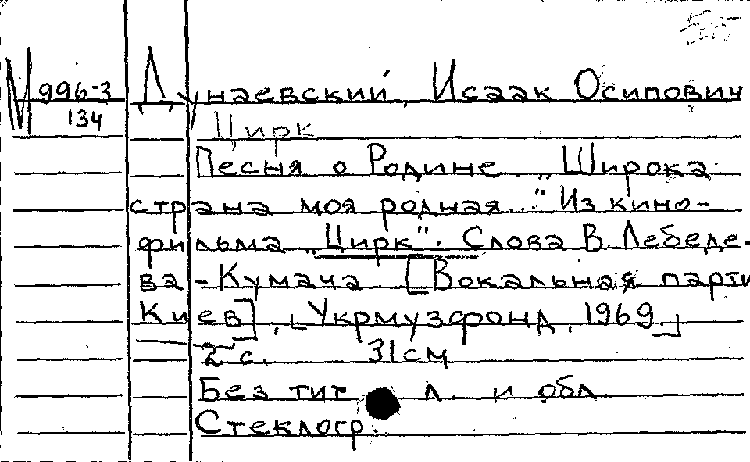 М 996-3 Дунаевский, Исаак Осипович
134
Цирк
Песня о Родине „Широка
страна моя родная.." Из кино-
фильма „Цирк". Слова В Лебеде-
ва-Кумача [Вокальная парти
Киев], [Укрмузфонд, 1969.]
2 с. 31см
Без тит л. и обл
Стеклогр.